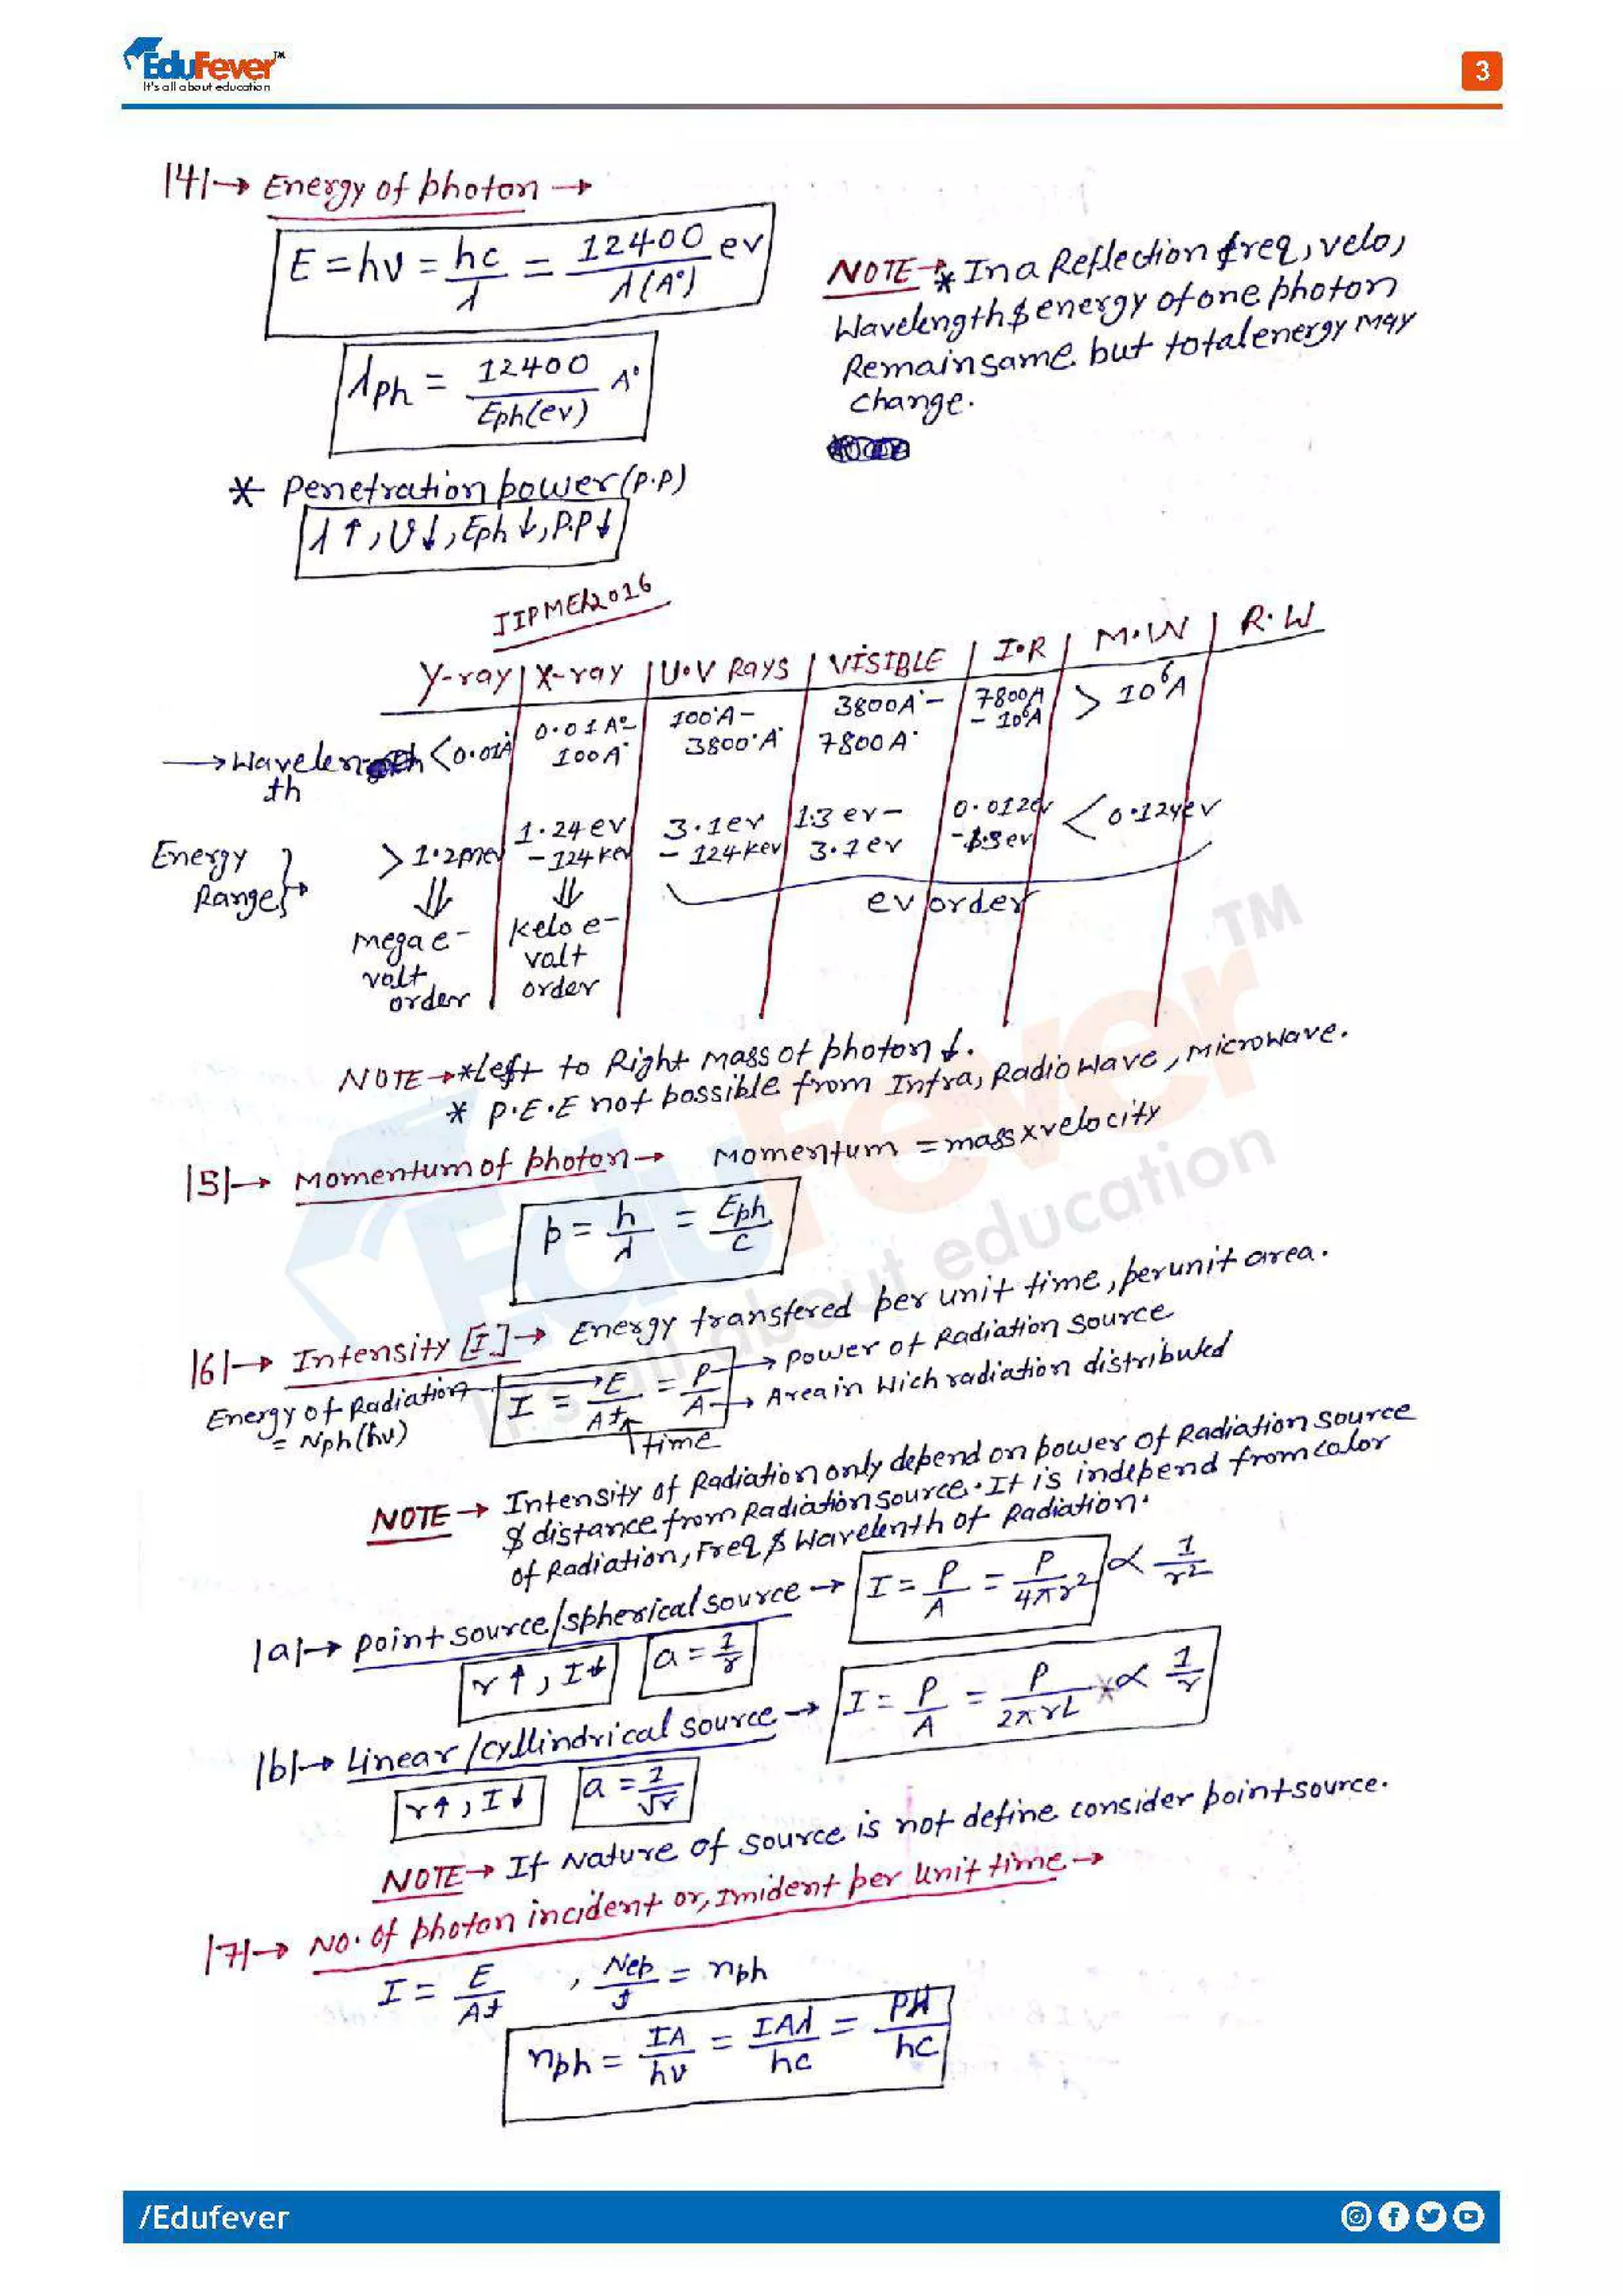 EduFever™
It's all about education
3
|4|→ Energy of photon →
E = hν = hc/λ = 12400/λ(A°) ev
λph = 12400/Eph(ev) A°
NOTE→* In a Reflection freq, velo,
Wavelength & energy of one photon
Remain same but total energy may
change.
* Penetration power (P.P)
λ↑, ν↓, Eph↓, P.P↓
JIPMER 2016
γ-ray | X-ray | U.V Rays | VISIBLE | I.R | M.W | R.W
→ Wavelen
th
<0.01A° | 0.01A°- 100A° | 100A°- 3800A° | 3800A°- 7800A° | 7800A - 10⁶A | > 10⁶A
Energy Range }→
>1.2mev | 1.24ev - 124kev | 3.1ev - 124kev | 1.3 ev - 3.1ev | 0.012ev - 1.3ev | <0.124ev
⇓ ⇓
mega e- volt order | kelo e- volt order | ev order
NOTE→*Left to Right mass of photon ↓.
* P.E.E not possible from Infra, Radio Wave, microwave.
|5|→ Momentum of photon→ Momentum = mass x velocity
p = h/λ = Eph/c
|6|→ Intensity [I]→ Energy transfered per unit time, per unit area.
Energy of Radiation = Nph(hν)
I = E/At = P/A
→ Power of Radiation Source
→ Area in Wich radiation distributed
time
NOTE→ Intensity of Radiation only depend on power of Radiation source
& distance from Radiation source. It is independ from color
of Radiation, Freq & Wavelenth of Radiation.
|a|→ point source/spherical source → I = P/A = P/4πr² ∝ 1/r²
r↑, I↓ a = 1/r
|b|→ Linear /cyllindrical source → I = P/A = P/2πrL ∝ 1/r
r↑, I↓ a = 1/√r
NOTE→ If Nature of source is not define consider point source.
|7|→ No. of photon incident or, Imident per Unit time→
I = E/At , Nep/t = nph
nph = IA/hν = IAλ/hc = Pλ/hc
/Edufever